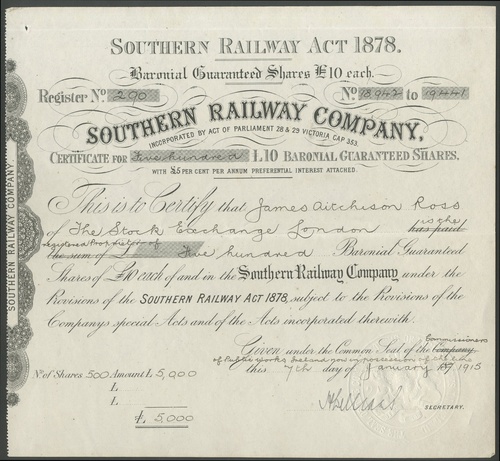 SOUTHERN RAILWAY ACT 1878.
Baronial Guaranteed Shares £10 each.
Register No. 290 No. 18942 to 19441
SOUTHERN RAILWAY COMPANY,
INCORPORATED BY ACT OF PARLIAMENT 28 & 29 VICTORIA CAP 353.
CERTIFICATE FOR Five hundred £10 BARONIAL GUARANTEED SHARES.
WITH £5 PER CENT PER ANNUM PREFERENTIAL INTEREST ATTACHED.
This is to Certify that James Aitchison Ross
of The Stock Exchange London is the has paid
registered Proprietor of
the sum of £ Five hundred Baronial Guaranteed
Shares of £10 each of and in the Southern Railway Company under the
Provisions of the SOUTHERN RAILWAY ACT 1878, subject to the Provisions of the
Companys special Acts and of the Acts incorporated therewith.
Given under the Common Seal of the Company Commissioners
of Public Works Ireland now in possession of the line
this 7th day of January 1915
No. of Shares 500 Amount £5,000
£
£
£ 5,000
SECRETARY.
SOUTHERN RAILWAY COMPANY